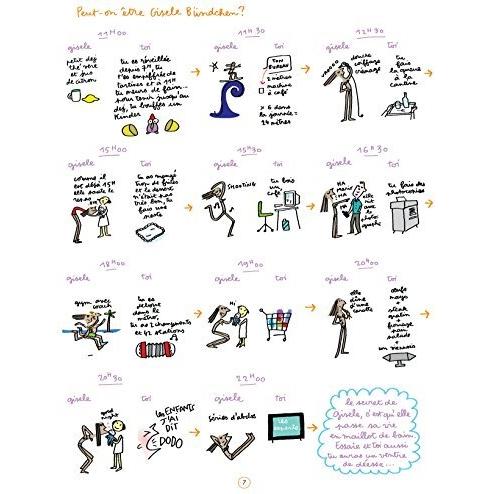 Peut-on être Gisele Bündchen?
11H00
gisele toi
petit dej
thé vert
et jus
de citron
tu es réveillée
depuis 7H, tu
t'es empiffrée de
tartines et à 11H
tu meurs de faim...
pour tenir jusqu'au
dej, tu bouffes un
Kinder
11H30
gisele toi
TON
BUREAU
2 mètres
machine
à café
x 6 dans
la journée =
24 mètres
12H30
gisele toi
VROOO
douche
coiffage
crémage
tu
fais
la queue
à la
cantine
15H00
gisele toi
comme il
est déjà 15H
elle saute le
repas...
tu as mangé
trop de frites
et le dessert
n'était pas
très bon, tu
fais une
note
15H30
gisele toi
SHOOTING
tu bois
un
café
16H30
gisele toi
HA
HA
HA
elle
rit
avec
le
photo-
graphe
tu fais des
photocopies
18H00
gisele toi
gym avec
coach
tu es
debout
dans le
métro,
tu as 2 changements
et 42 stations
19H00
gisele toi
Hi
20H00
gisele toi
elle
dîne
d'une
carotte
oeufs
mayo
+
steak
gratin
+
fromage
sans
salade
+
un mars
20H30
gisele toi
good
night
LES ENFANTS
J'AI
DIT
DODO
22H00
gisele toi
séries d'abdos
les
experts
le secret de
gisele, c'est qu'elle
passe sa vie
en maillot de bain.
Essaie et toi aussi
tu auras un ventre
de déesse...
7